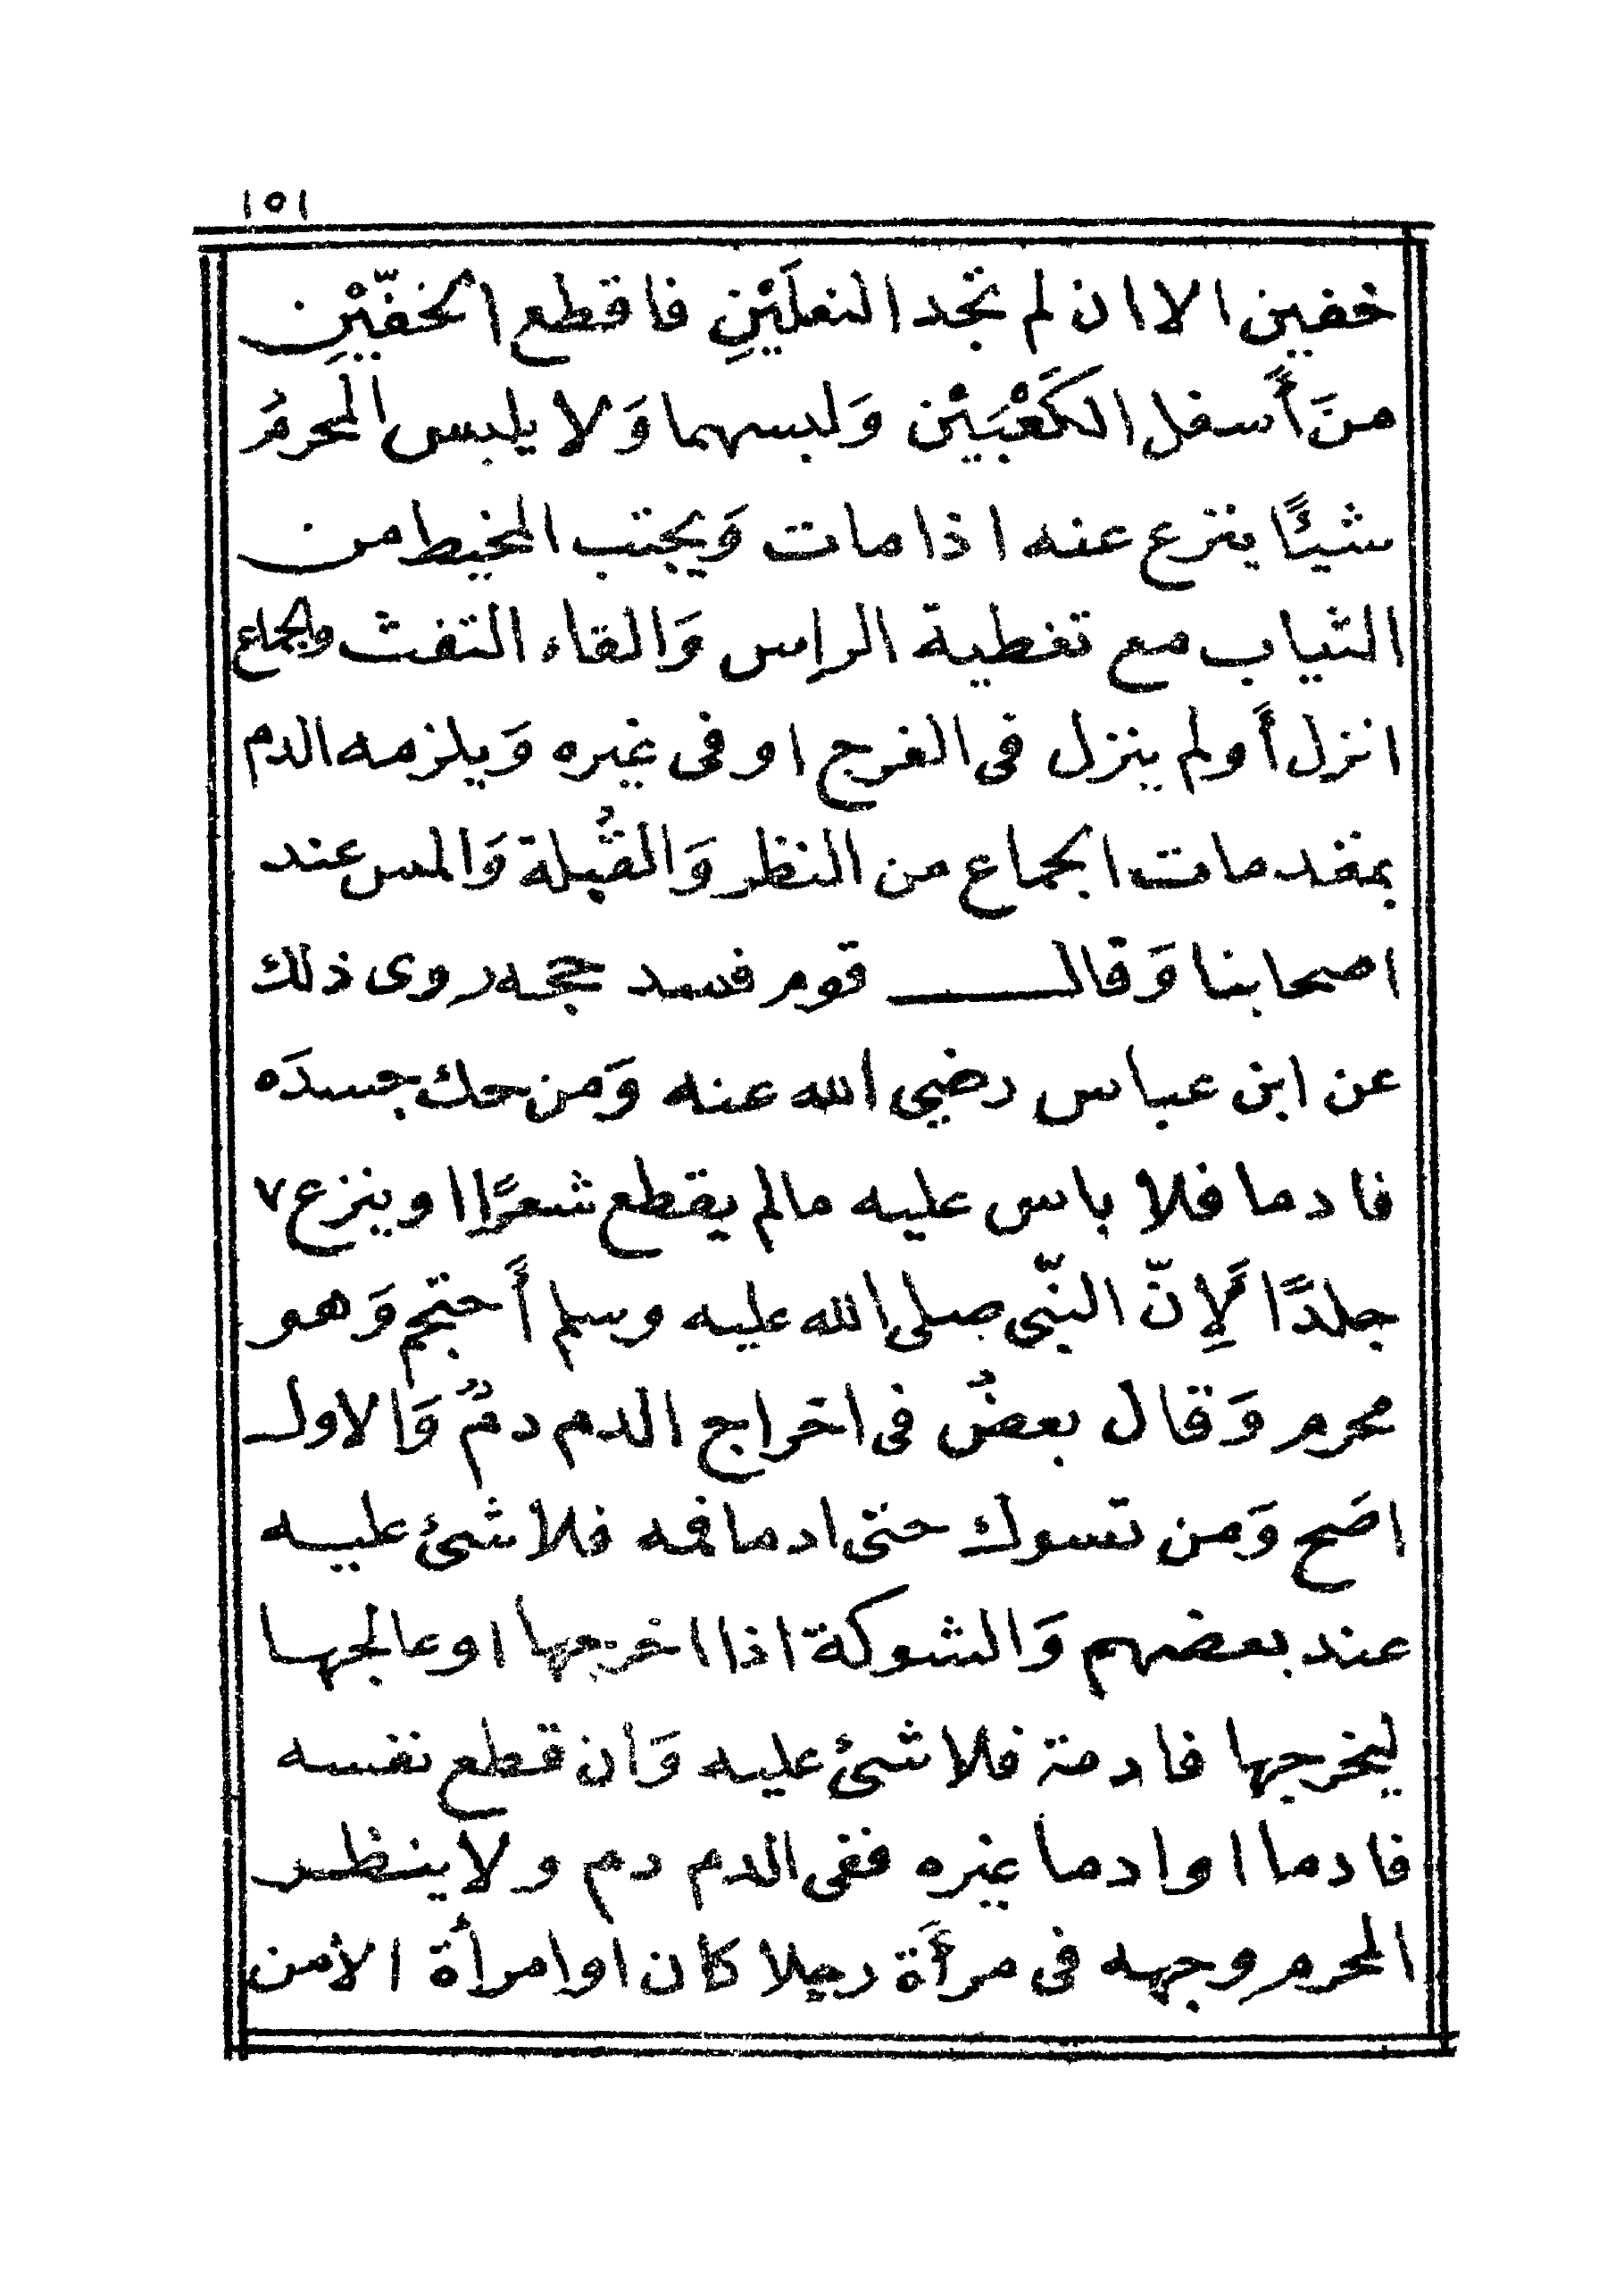 ١٥١
خفين الا ان لم تجد النعلَيْنِ فاقطع الخفّيْنِ
منَ أَسفل الكَعْبَيْن وَلبسهما وَلا يلبس المحرمُ
شيئًا ينزع عنه اذا مات وَيجتنب المخيط من
الثياب مع تغطية الراس وَالقاء التفث والجماع
انزل أَو لم ينزل فى الفرج او فى غيره وَيلزمه الدم
بمقدمات الجماع من النظر وَالقُبلة وَالمس عند
اصحابنا وَقال قوم فسد حجه روى ذلك
عن ابن عباس رضي الله عنه وَمن حك جسدَه
فادما فلا باس عليه مالم يقطع شعرًا او ينزع ٧
جلدًا لَإِنّ النبّى صلى الله عليه وسلم أَحتجم وَهو
محرم وَقال بعضُ فى اخراج الدم دمٌ وَالاول
اصَح وَمن تسوك حتى ادما فمه فلا شئ عليه
عند بعضهم وَالشوكة اذا اخرجها او عالجها
ليخرجها فادمته فلا شئ عليه وَان قطع نفسه
فادما او ادما غيره ففى الدم دم ولا ينظر
المحرم وجهه فى مرأَة رجلا كان او امرأة الأمن